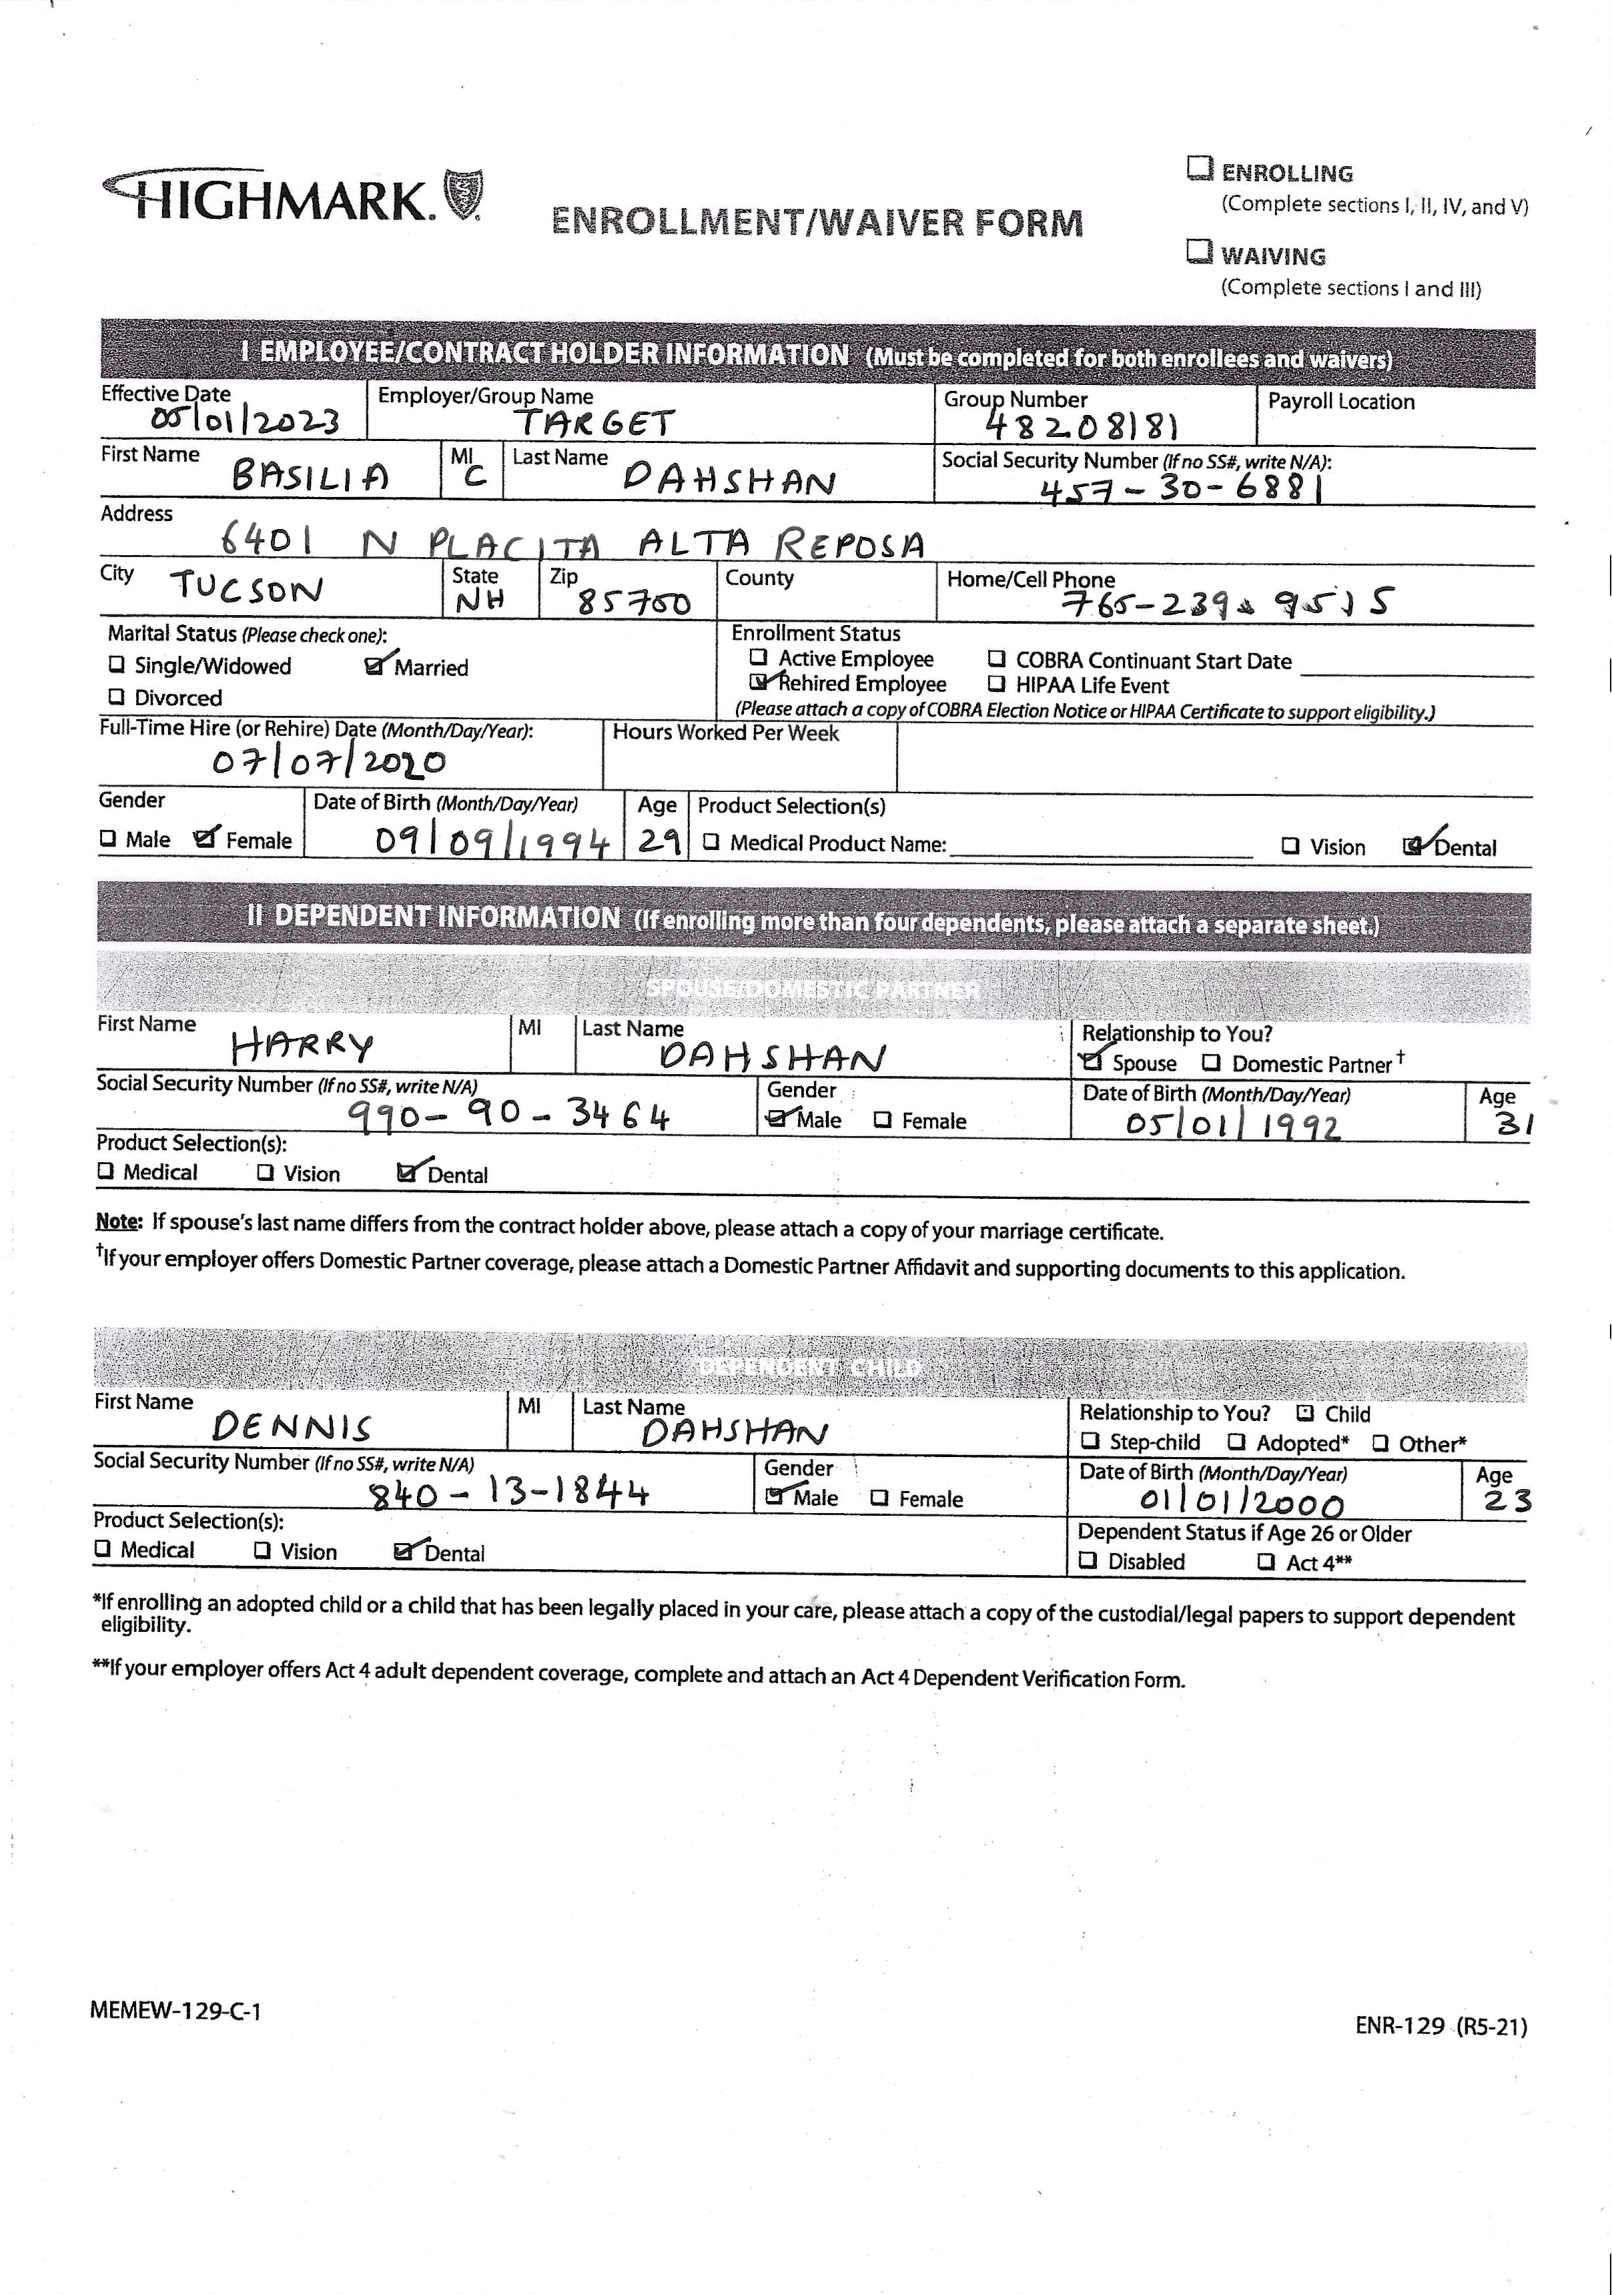 HIGHMARK.
ENROLLMENT/WAIVER FORM
☐ ENROLLING
(Complete sections I, II, IV, and V)
☐ WAIVING
(Complete sections I and III)
I EMPLOYEE/CONTRACT HOLDER INFORMATION (Must be completed for both enrollees and waivers)
Effective Date Employer/Group Name Group Number Payroll Location
05/01/2023 TARGET 48208181
First Name BASILIA MI C Last Name DAHSHAN Social Security Number (If no SS#, write N/A):
457-30-6881
Address
6401 N PLACITA ALTA REPOSA
City TUCSON State NH Zip 85750 County Home/Cell Phone
765-239-9515
Marital Status (Please check one): Enrollment Status
☐ Single/Widowed ☑ Married ☐ Active Employee ☐ COBRA Continuant Start Date
☐ Divorced ☑ Rehired Employee ☐ HIPAA Life Event
(Please attach a copy of COBRA Election Notice or HIPAA Certificate to support eligibility.)
Full-Time Hire (or Rehire) Date (Month/Day/Year): Hours Worked Per Week
07/07/2020
Gender Date of Birth (Month/Day/Year) Age Product Selection(s)
☐ Male ☑ Female 09/09/1994 29 ☐ Medical Product Name: ☐ Vision ☑ Dental
II DEPENDENT INFORMATION (If enrolling more than four dependents, please attach a separate sheet.)
SPOUSE/DOMESTIC PARTNER
First Name HARRY MI Last Name DAHSHAN Relationship to You?
☑ Spouse ☐ Domestic Partner†
Social Security Number (If no SS#, write N/A) Gender Date of Birth (Month/Day/Year) Age
990-90-3464 ☑ Male ☐ Female 05/01/1992 31
Product Selection(s):
☐ Medical ☐ Vision ☑ Dental
Note: If spouse's last name differs from the contract holder above, please attach a copy of your marriage certificate.
†If your employer offers Domestic Partner coverage, please attach a Domestic Partner Affidavit and supporting documents to this application.
DEPENDENT CHILD
First Name DENNIS MI Last Name DAHSHAN Relationship to You? ☑ Child
☐ Step-child ☐ Adopted* ☐ Other*
Social Security Number (If no SS#, write N/A) Gender Date of Birth (Month/Day/Year) Age
840-13-1844 ☑ Male ☐ Female 01/01/2000 23
Product Selection(s): Dependent Status if Age 26 or Older
☐ Medical ☐ Vision ☑ Dental ☐ Disabled ☐ Act 4**
*If enrolling an adopted child or a child that has been legally placed in your care, please attach a copy of the custodial/legal papers to support dependent
eligibility.
**If your employer offers Act 4 adult dependent coverage, complete and attach an Act 4 Dependent Verification Form.
MEMEW-129-C-1
ENR-129 (R5-21)